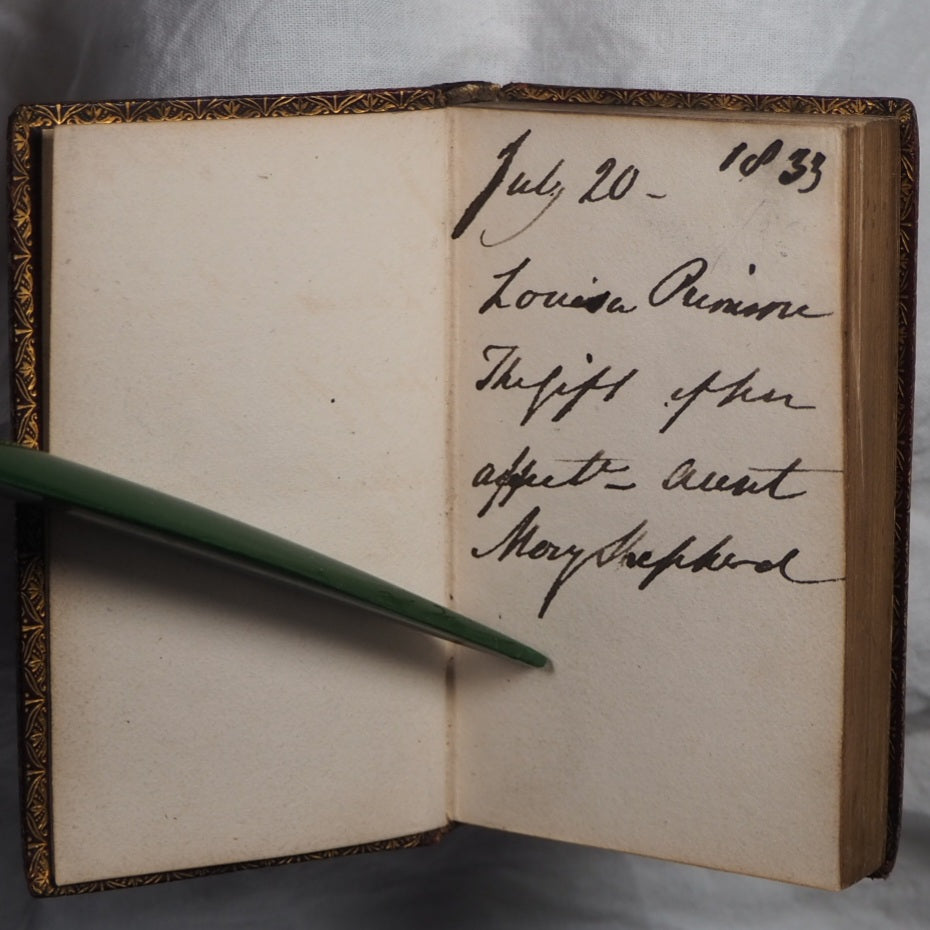 July 20 - 1833
Louisa Primrose
The gift of her
affect - aunt
Mary Shepherd